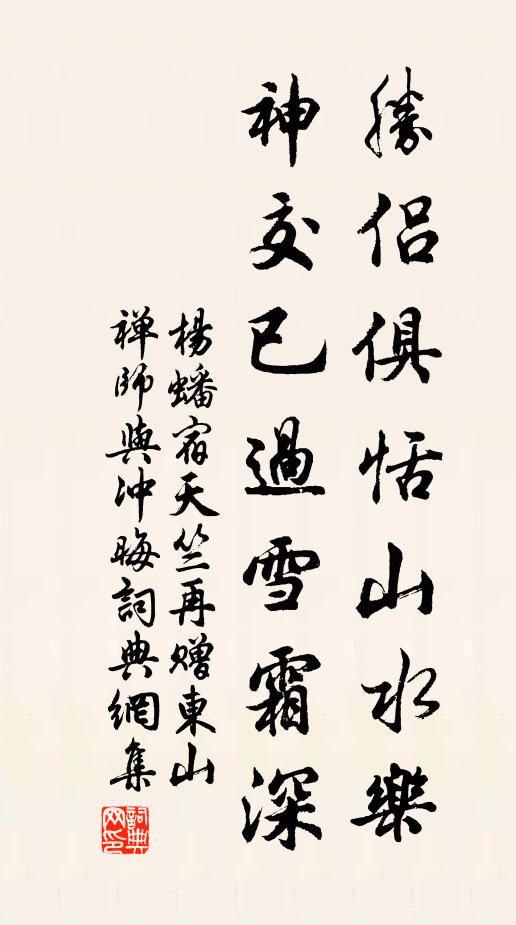 勝侶俱恬山水樂
神交已過雪霜深
楊蟠宿天竺再贈東山
禅師與冲晦詞典網集
詞典
网印